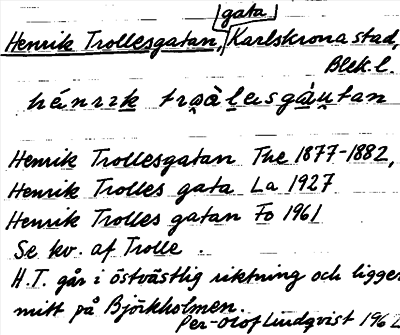 gata
Henrik Trollesgatan, Karlskrona stad,
Blek.l.
Henrik Trollesgatan The 1877-1882,
Henrik Trolles gata La 1927
Henrik Trolles gatan Fo 1961
Se kv. af Trolle.
H.T. går i östvästlig riktning och ligger
mitt på Björkholmen.
Per-Olof Lindqvist 1962